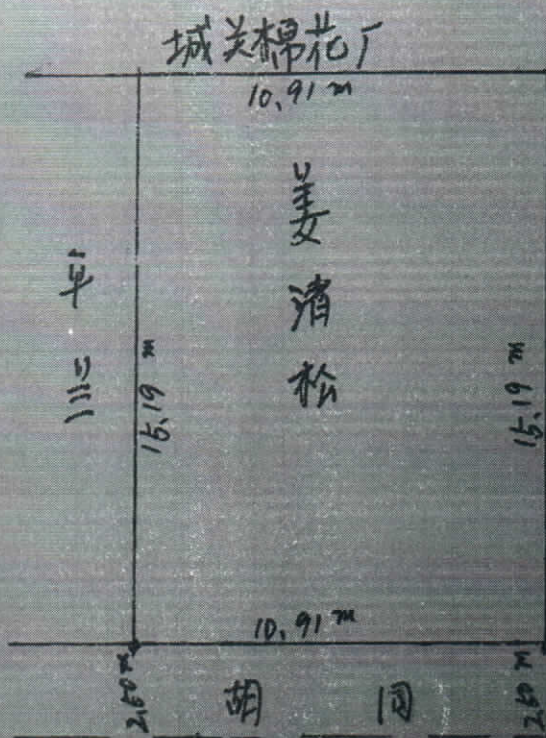 城关棉花厂
10.91 m
姜清松
15.19 m
15.19 m
10.91 m
2.50 m
胡同
2.50 m